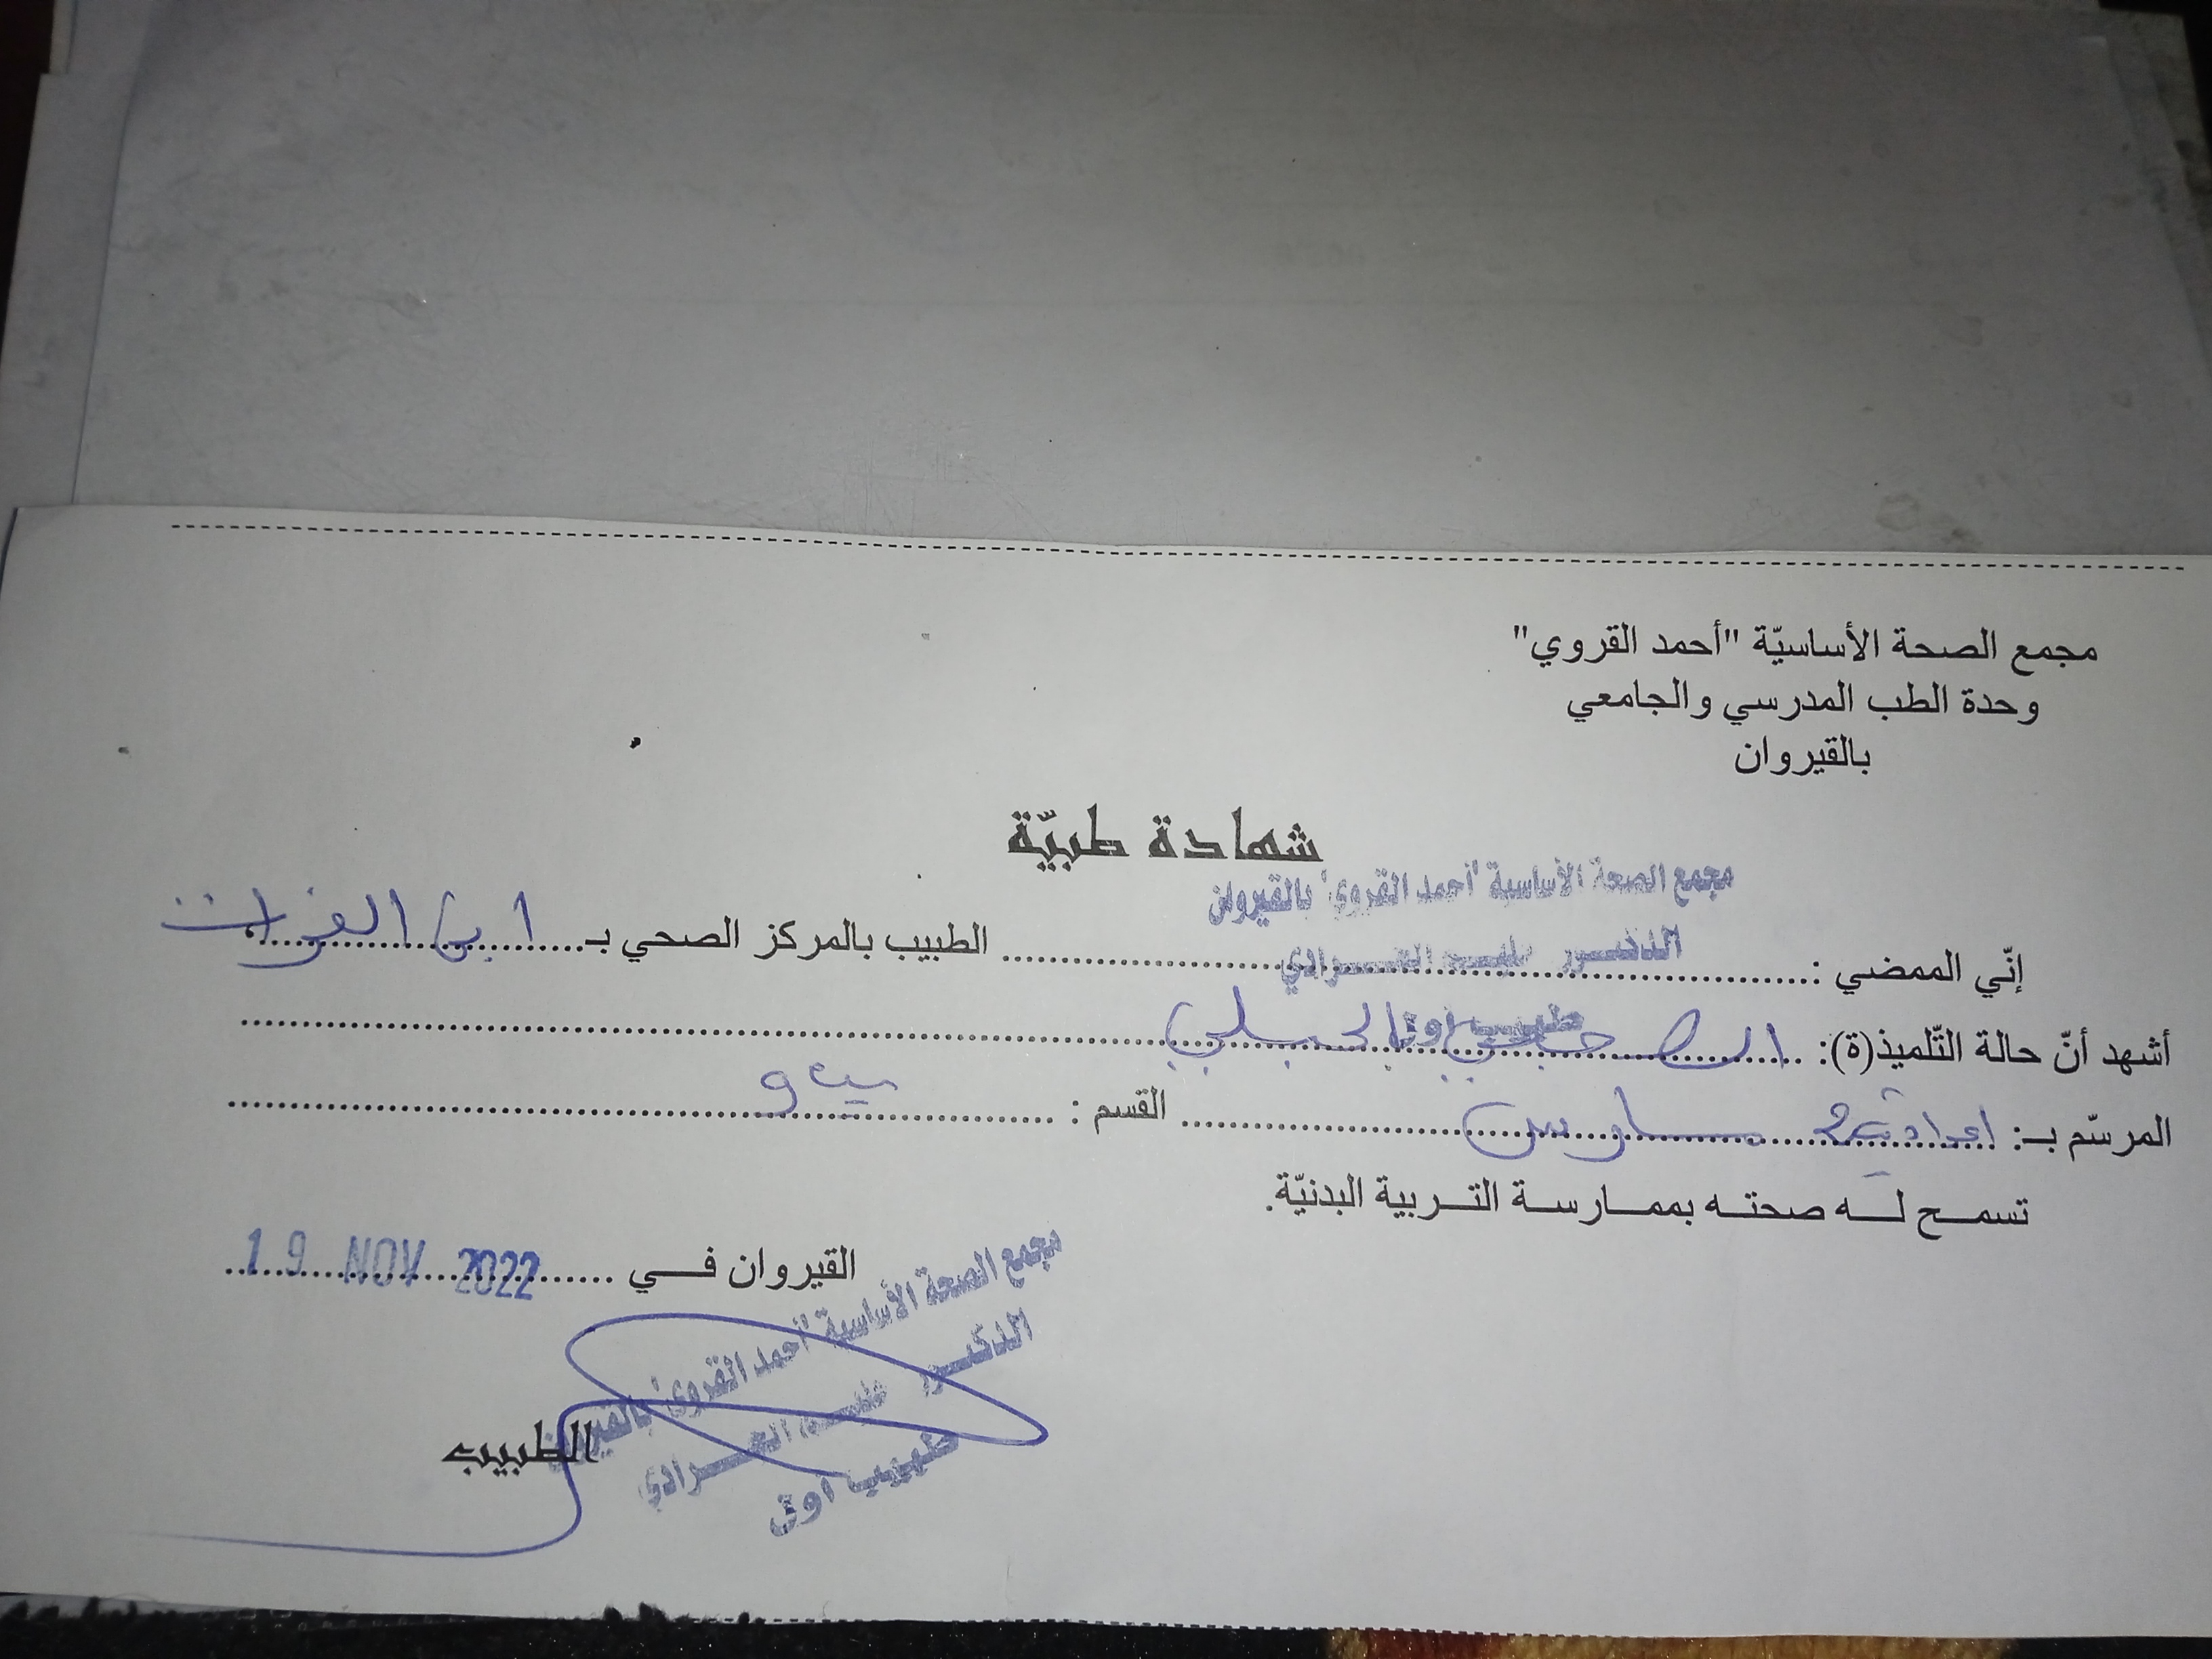 مجمع الصحة الأساسيّة "أحمد القروي"
وحدة الطب المدرسي والجامعي
بالقيروان
شهادة طبيّة
مجمع الصحة الأساسية "أحمد القروي" بالقيروان
إنّي الممضي : الدكتور الطبيب بالمركز الصحي بـ ابن الفرات
أشهد أنّ حالة التّلميذ(ة):
طبيب أول
المرسّم بـ: اعدادية القسم :
تسمح له صحته بممارسة التربية البدنيّة.
القيروان في 19 NOV 2022
مجمع الصحة الأساسية "أحمد القروي" بالقيروان
الدكتور
طبيب أول
الطبيب